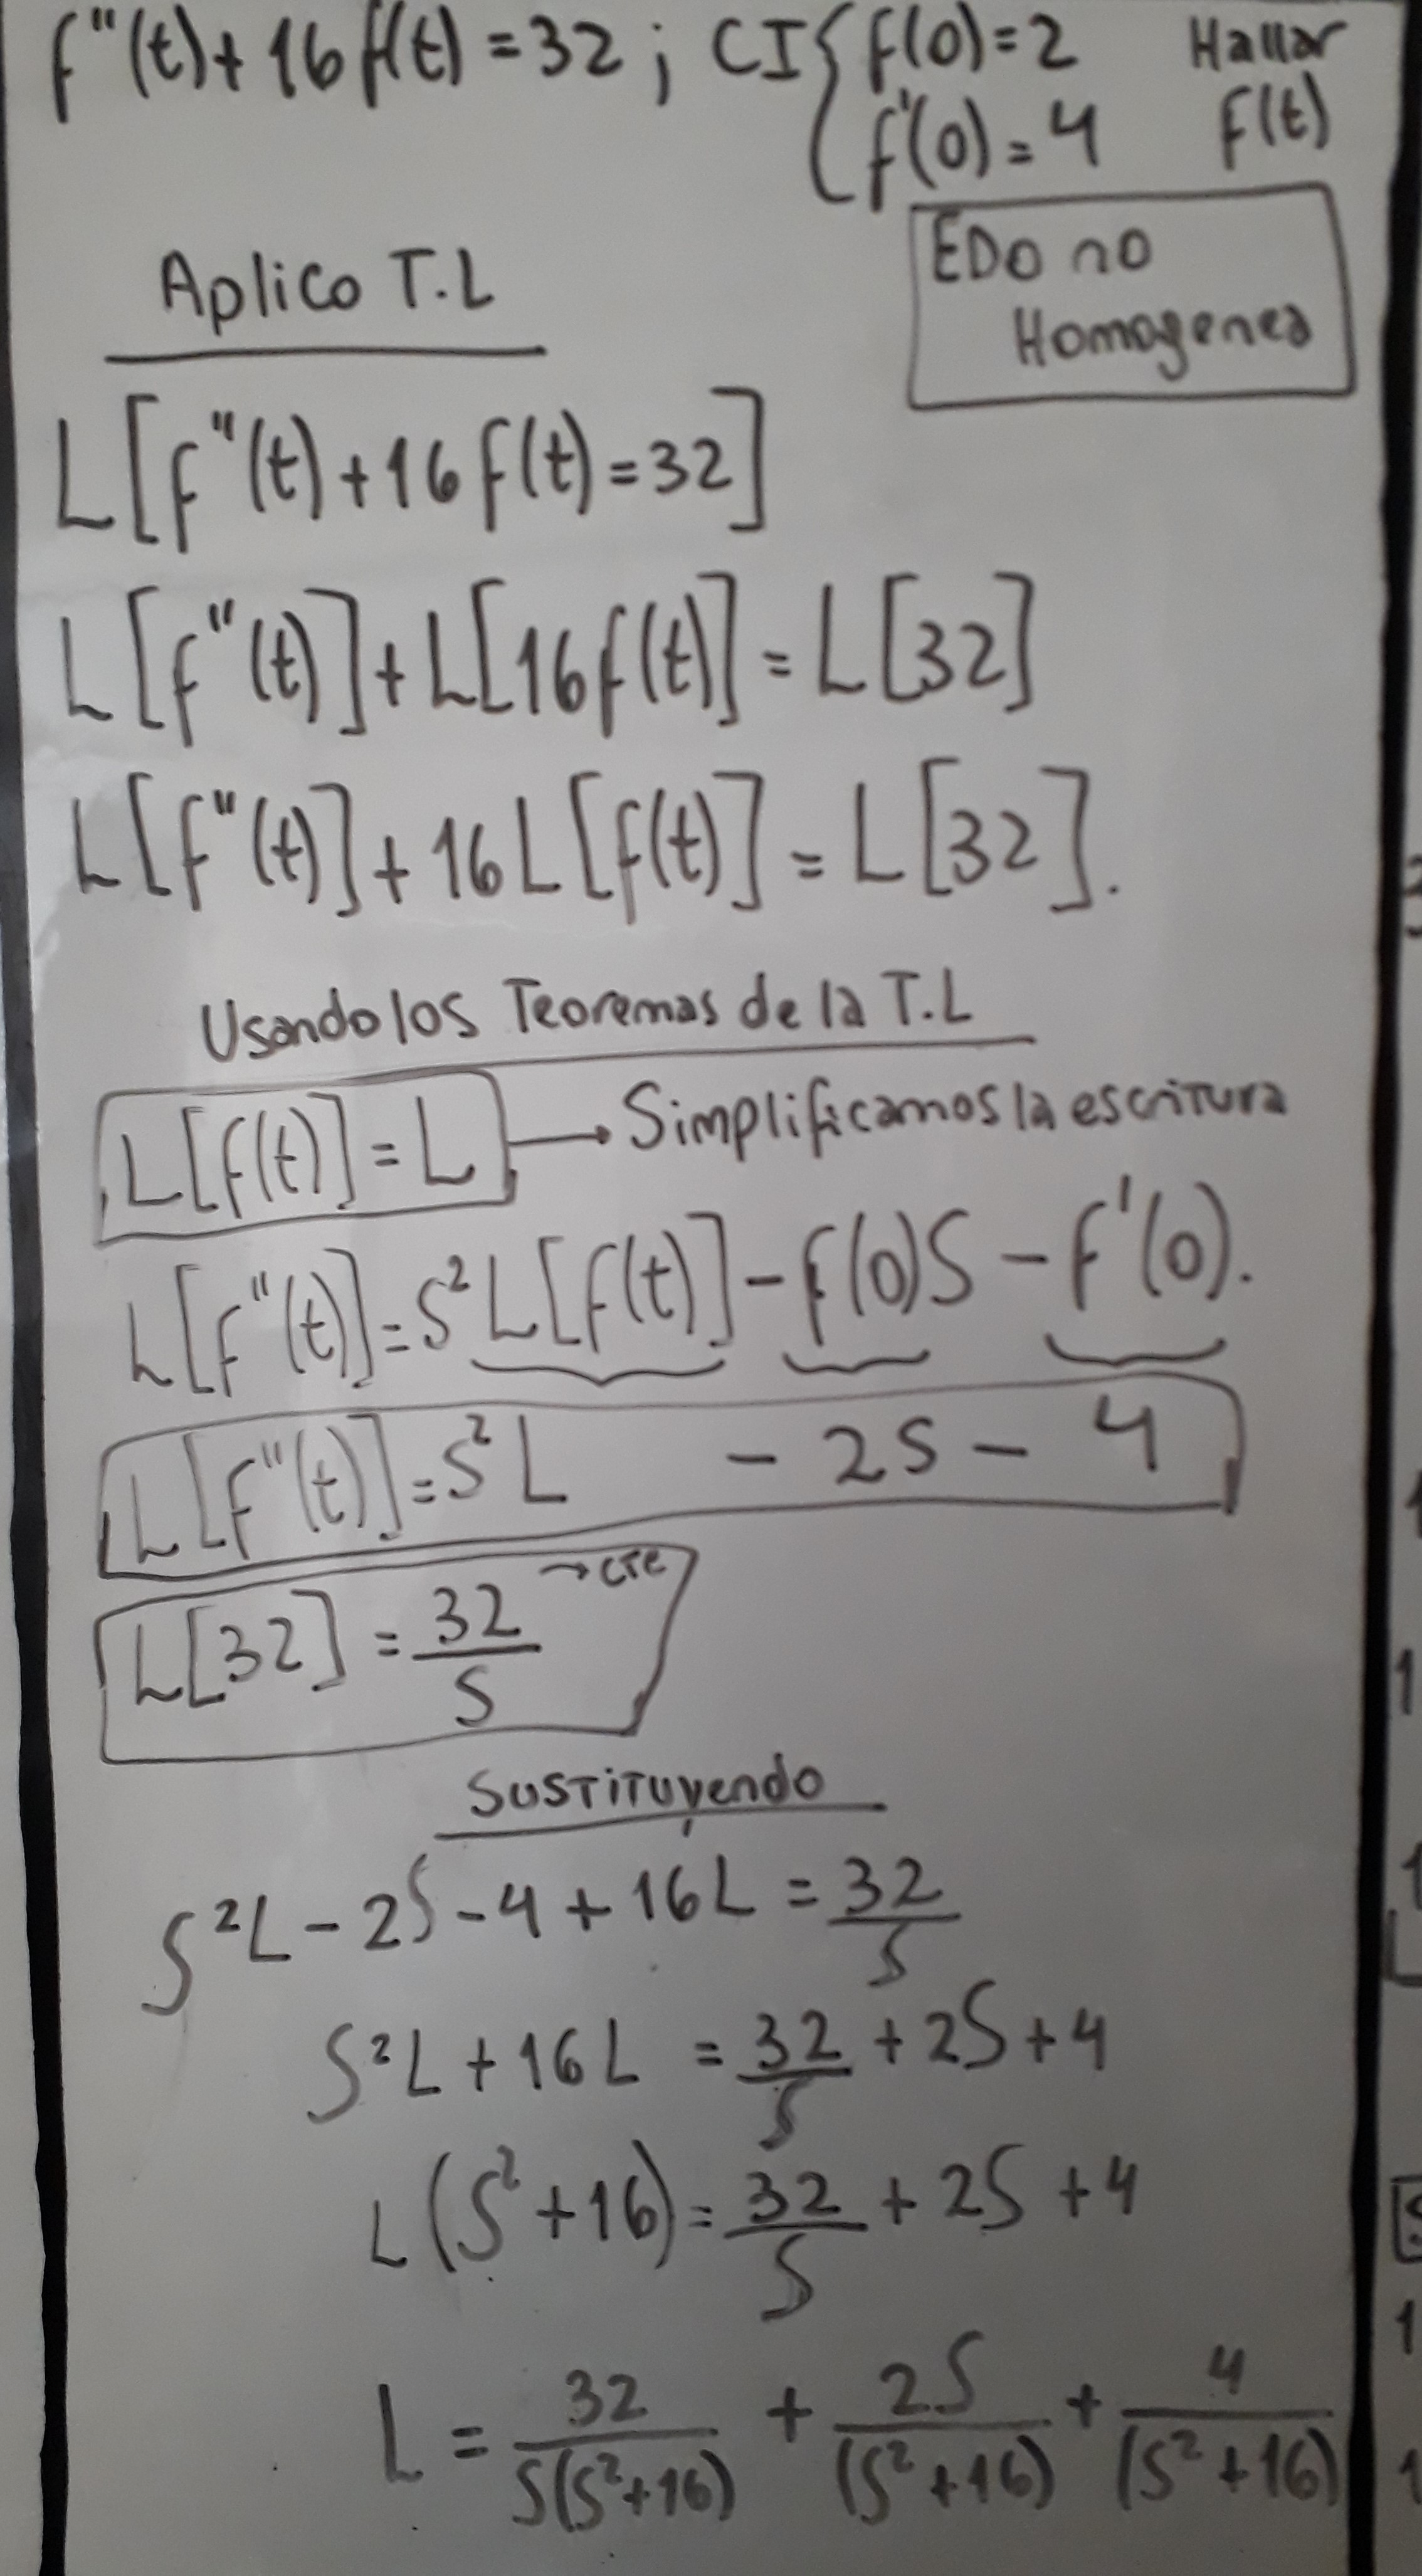 f''(t)+16f(t)=32; CI { f(0)=2 Hallar
f'(0)=4 F(t)
EDO no
Homogenea
Aplico T.L
L[f''(t)+16f(t)=32]
L[f''(t)]+L[16f(t)]=L[32]
L[f''(t)]+16L[f(t)]=L[32].
Usando los Teoremas de la T.L
L[f(t)]=L → Simplificamos la escritura
L[f''(t)]=S²L[f(t)]-f(0)S-f'(0).
L[f''(t)]=S²L -2S-4
L[32]=32/S → cte
Sustituyendo
S²L-2S-4+16L=32/S
S²L+16L=32/S+2S+4
L(S²+16)=32/S+2S+4
L=32/S(S²+16)+2S/(S²+16)+4/(S²+16)